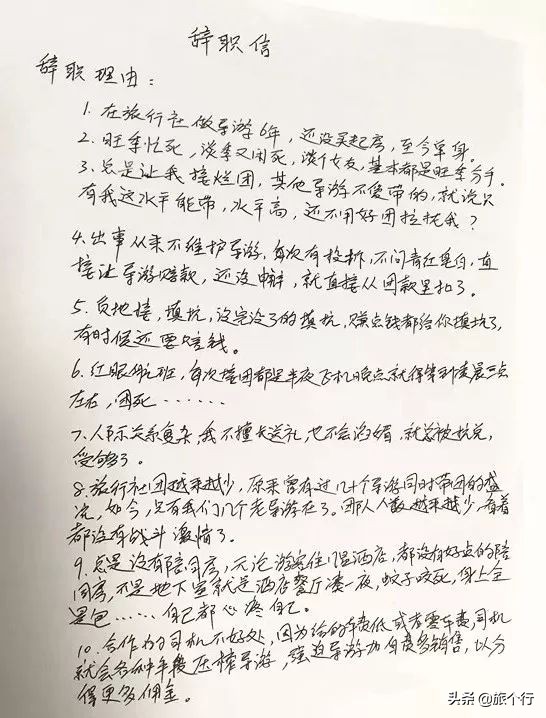 辞职信
辞职理由：
1. 在旅行社做导游6年，还没买起房，至今单身。
2. 旺季忙死，淡季又闲死，谈个女友，基本都是旺季分手。
3. 总是让我接烂团，其他导游不愿带的，就说只
有我这水平能带，水平高，还不用好团拉拢我？
4. 出事从来不维护导游，每次有投诉，不问青红皂白，直
接让导游赔款，还没申辩，就直接从团款里扣了。
5. 负地接，填坑，没完没了的填坑，赚点钱都给你填坑了，
有时候还要赔钱。
6. 红眼航班，每次接团都是半夜，飞机晚点就得等到凌晨三点
左右，困死……
7. 人际关系复杂，我不擅长送礼，也不会谄媚，就总被挤兑，
受够了。
8. 旅行社团越来越少，原来曾有过几十个导游同时带团的盛
况，如今，只有我们几个老导游在了。团队人数越来越少，看着
都没有战斗激情了。
9. 总是没有陪同房，无论游客住几温酒店，都没有好点的陪
同房，不是地下室就是酒店餐厅凑一夜，蚊子咬死，身上全
是包……自己都心疼自己。
10. 合作的司机不好处，因为给的车费低或者零车费，司机
就会各种手段压榨导游，强迫导游加自费多销售，以分
得更多佣金。
头条@旅个行